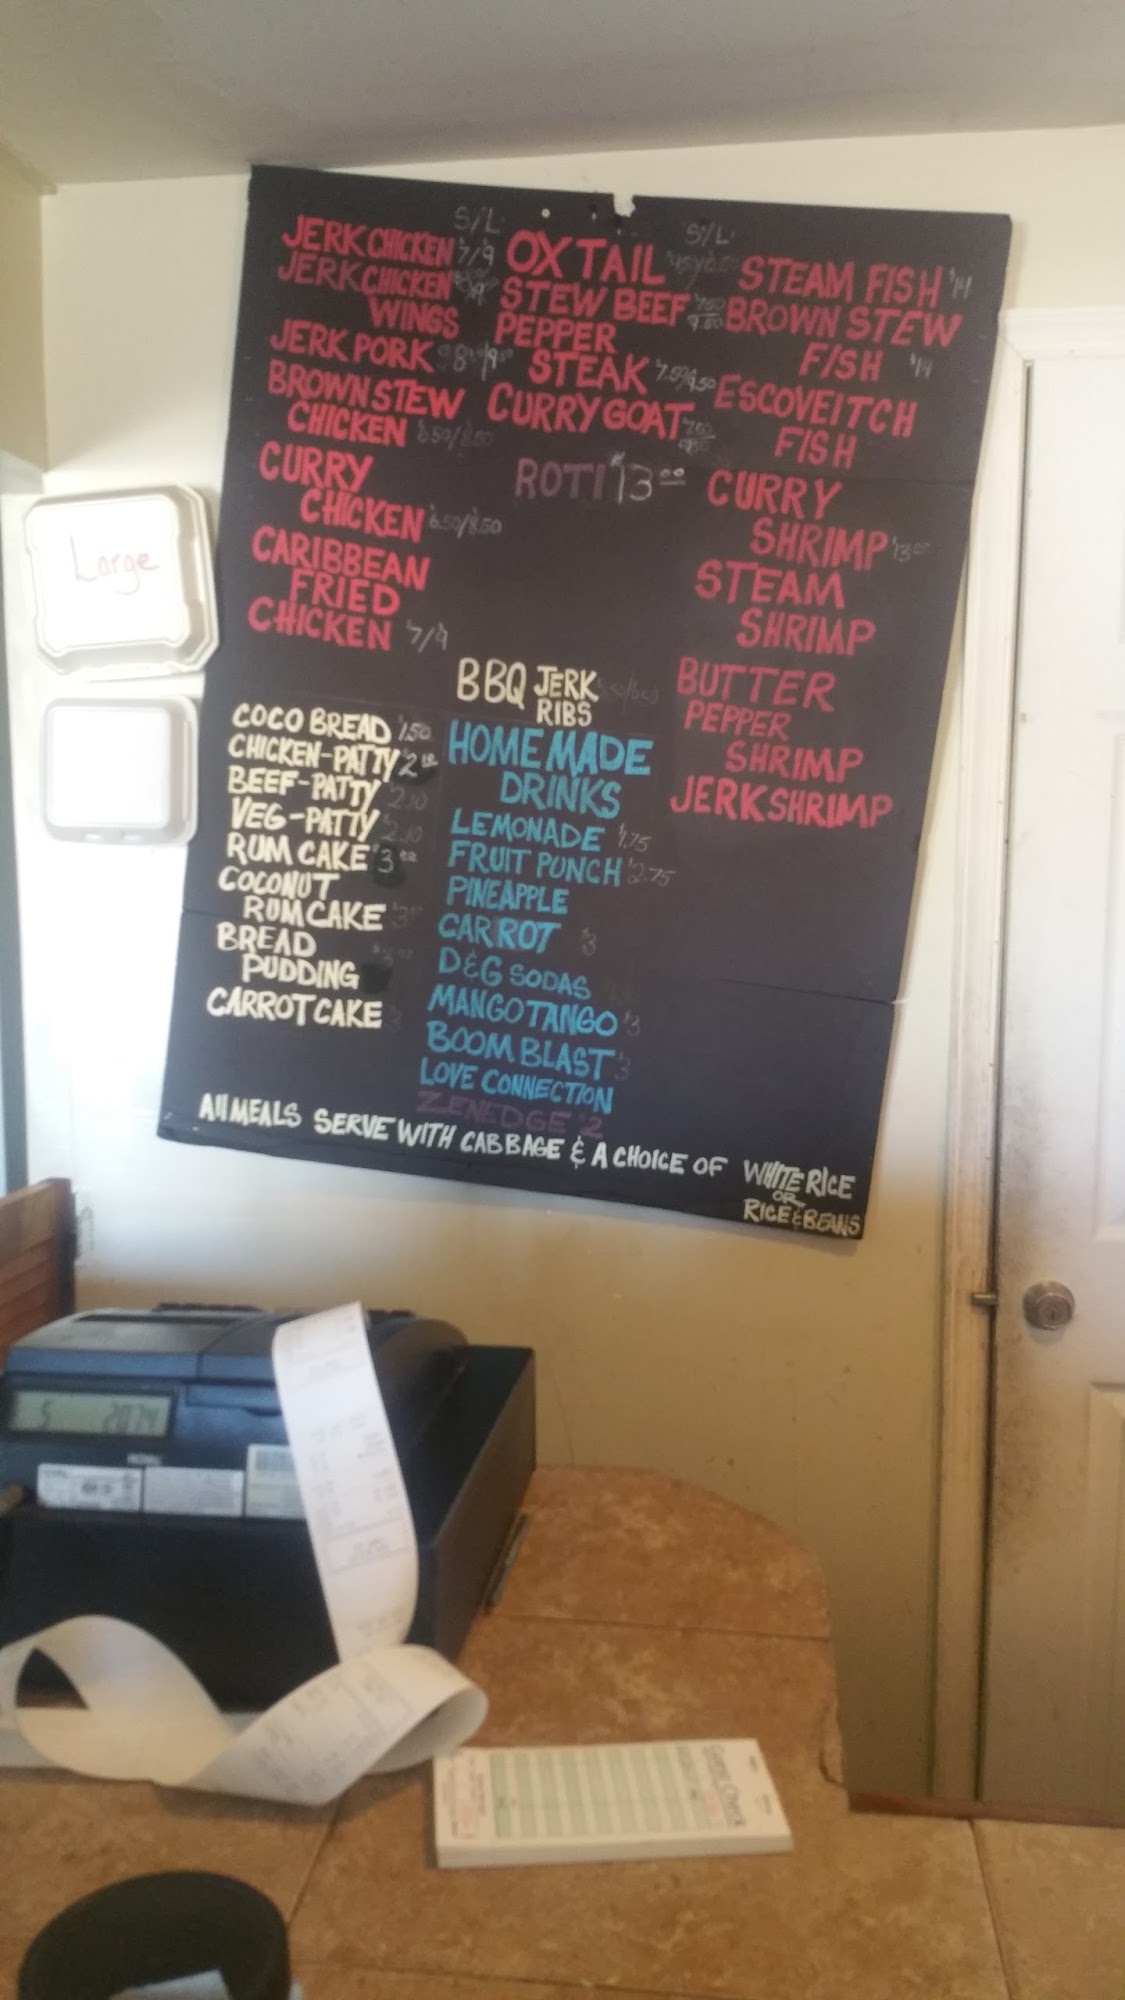 S/L
JERK CHICKEN $7/$9
JERK CHICKEN
WINGS
JERK PORK
BROWN STEW
CHICKEN 6.50/8.50
CURRY
CHICKEN 6.50/8.50
CARIBBEAN
FRIED
CHICKEN $7/9
S/L
OXTAIL
STEW BEEF 7.50
9.50
PEPPER
STEAK 7.50/9.50
CURRY GOAT 7.50
9.50
ROTI $13.00
STEAM FISH $14
BROWN STEW
FISH $14
ESCOVEITCH
FISH
CURRY
SHRIMP $13.00
STEAM
SHRIMP
BUTTER
PEPPER
SHRIMP
JERK SHRIMP
BBQ JERK
RIBS
COCO BREAD $1.50
CHICKEN-PATTY $2.10
BEEF-PATTY 2.10
VEG-PATTY 2.10
RUM CAKE $3
COCONUT
RUM CAKE
BREAD
PUDDING
CARROT CAKE
HOMEMADE
DRINKS
LEMONADE $1.75
FRUIT PUNCH $2.75
PINEAPPLE
CARROT $3
D&G SODAS
MANGO TANGO $3
BOOM BLAST 3
LOVE CONNECTION
ZENEDGE $2
All MEALS SERVE WITH CABBAGE & A CHOICE OF WHITE RICE
OR
RICE & BEANS
Large
Guest Check